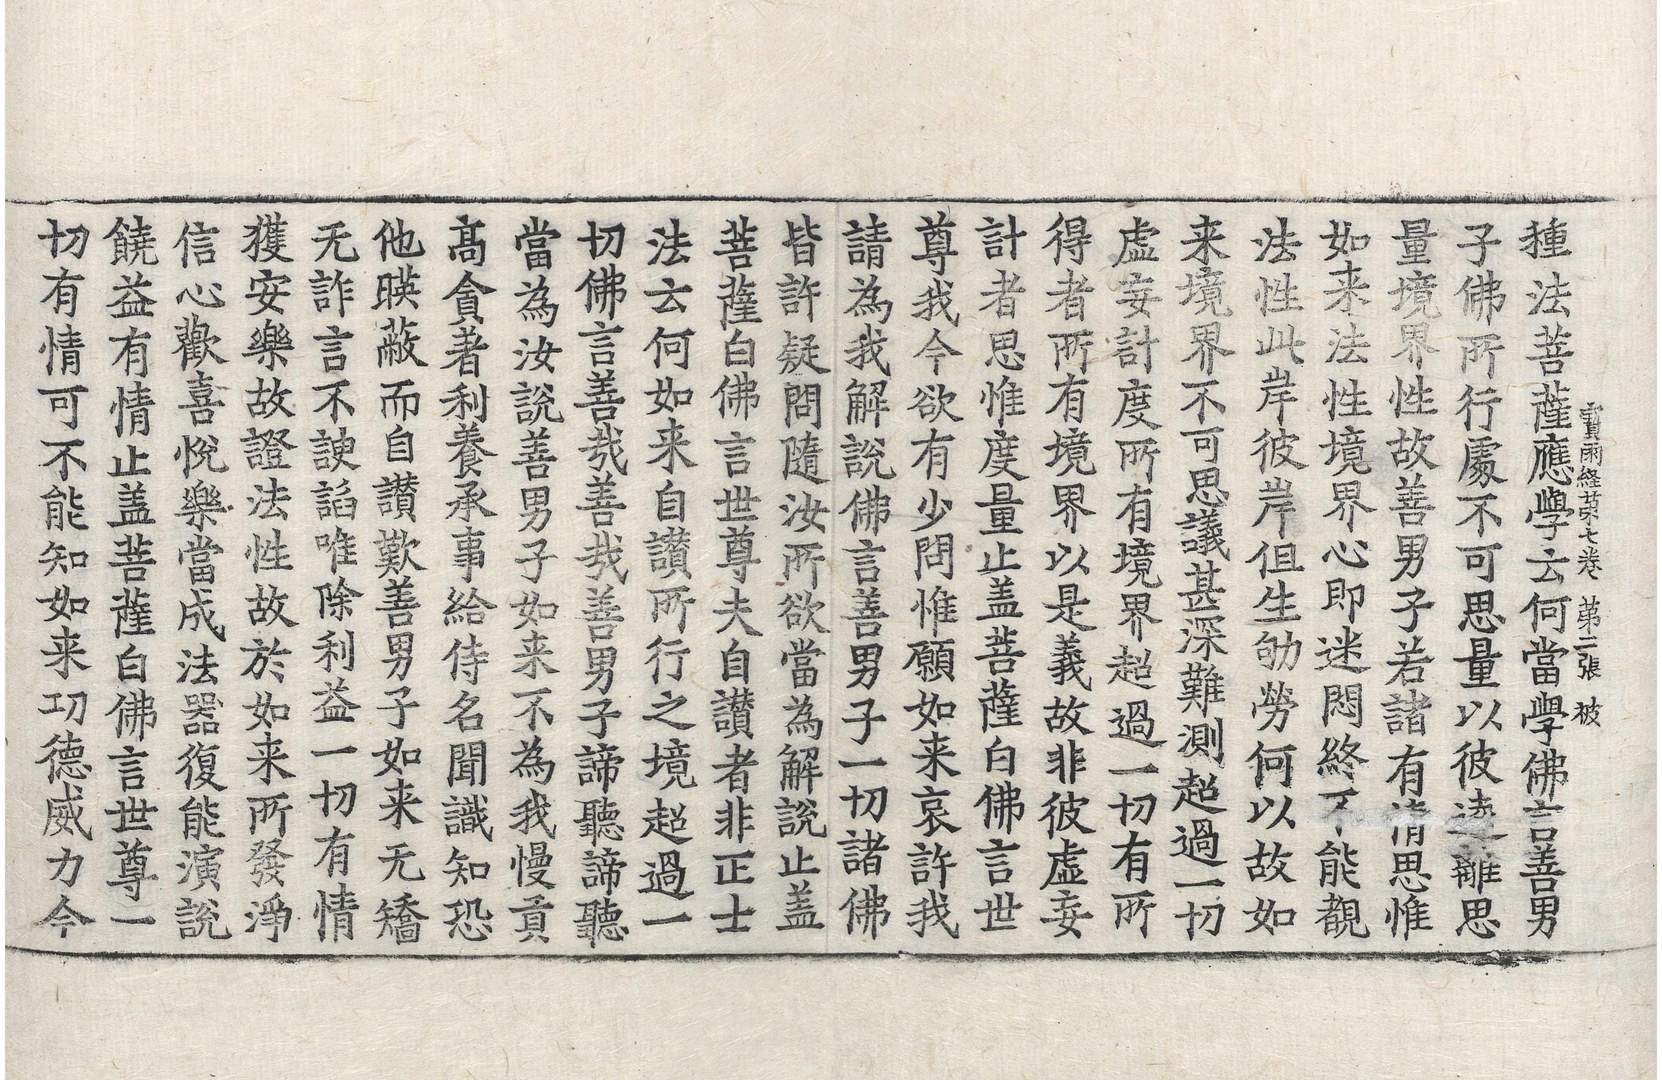 寳雨經第七卷 第二張 被
種法菩薩應學云何當學佛言善男
子佛所行處不可思量以彼遠離思
量境界性故善男子若諸有情思惟
如来法性境界心即迷悶終不能觀
法性此岸彼岸但生劬勞何以故如
来境界不可思議甚深難測超過一切
虛妄計度所有境界超過一切有所
得者所有境界以是義故非彼虛妄
計者思惟度量止盖菩薩白佛言世
尊我今欲有少問惟願如来哀許我
請為我解說佛言善男子一切諸佛
皆許疑問隨汝所欲當為解說止盖
菩薩白佛言世尊夫自讃者非正士
法云何如来自讃所行之境超過一
切佛言善㢤善㢤善男子諦聽諦聽
當為汝說善男子如来不為我慢貢
髙貪著利養承事給侍名聞識知恐
他暎蔽而自讃歎善男子如来无矯
无詐言不諛謟唯除利益一切有情
獲安樂故證法性故於如来所發淨
信心歡喜悅樂當成法器復能演說
饒益有情止盖菩薩白佛言世尊一
切有情可不能知如来功德威力今